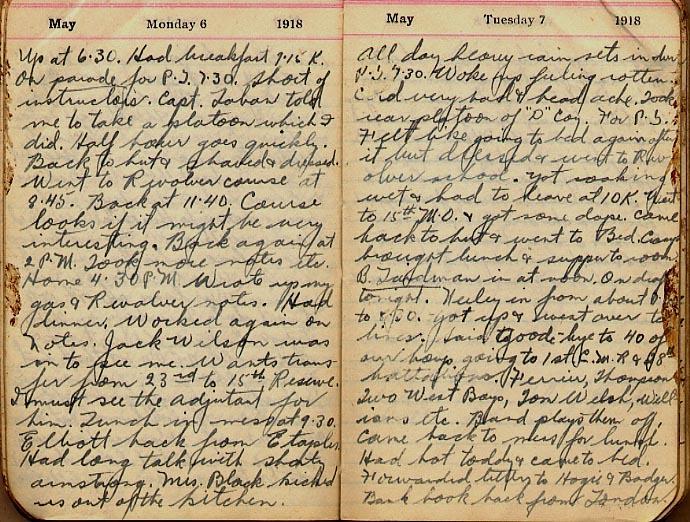 May Monday 6 1918
Up at 6.30. Had breakfast 7.15 K.
On parade for P.T. 7.30. Short of
instructors. Capt. told
me to take a platoon which I
did. Half hour goes quickly.
Back to hut & shaved & dressed.
Went to Revolver course at
8.45. Back at 11.40. Course
looks if it might be very
interesting. Back again at
2 P.M. Took more notes etc.
Home 4.30 P.M. Wrote up my
gas & Revolver notes. Had
dinner. Worked again on
notes. Jack Wilson was
in to see me. Wants trans
fer from 23rd to 15th Reserve.
I must see the adjutant for
him. Lunch in mess at 9.30.
Elliott back from Etaples.
Had long talk with Shorty
Armstrong. Mrs. Black kicked
us out of the kitchen.
May Tuesday 7 1918
All day heavy rain sets in
P.T. 7.30. Woke up feeling rotten.
Cold very bad & head ache. Took
rear platoon of "D" Coy. for P.T.
Felt like going to bed again after
it but dressed & went to Rev
olver school. Got soaking
wet & had to leave at 10 K. Went
to 15th M.O. & got some dope. Came
back to hut & went to Bed.
brought lunch & supper to room.
B. in at noon. On draft
tonight. in from about
to 8.30. Got up & went over to
lines. Said goode-bye to 40 of
our boys going to 1st C.M.R. &
battalions. Ferrier, Thompson
Two West Boys, Tom Welsh, Will
iams etc. Band plays them off.
Came back to mess for lunch.
Had hot toddy & came to bed.
Forwarded letters to Hogie & Badger.
Bank book back from London.